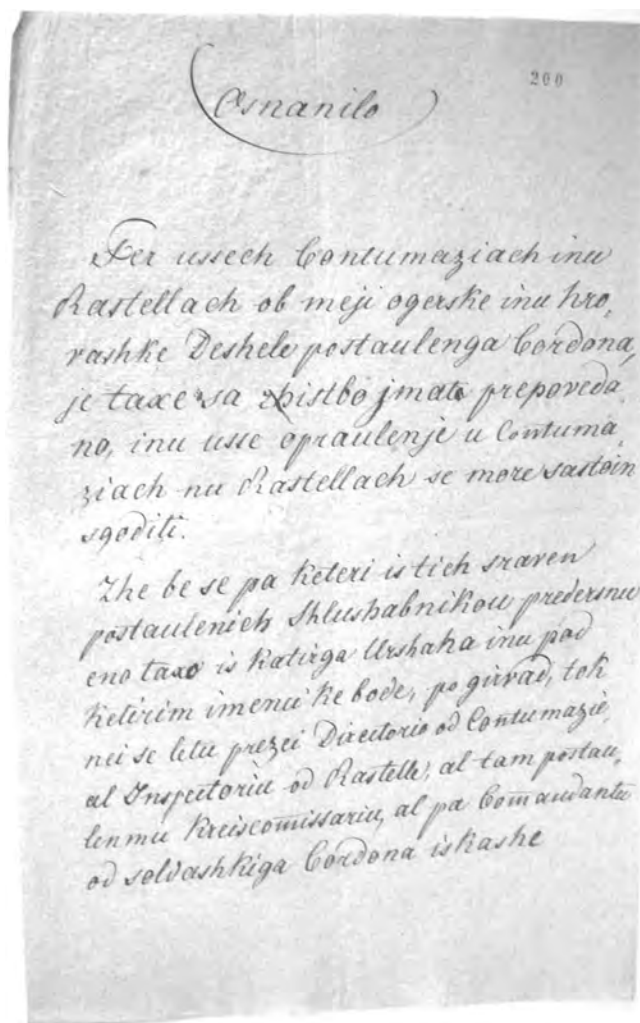 200
Osnanilo
Per ussech Contumaziach inu
Rastellach ob meji ogerske inu hro,
vashke Deshele postaulenga Cordona,
je taxe sa zhistbo jmate prepoveda
no, inu usse opraulenje u Contuma,
ziach nu Rastellach se more sastoin
sgoditi.
Zhe be se pa keteri is tich sraven
postaulenich Shlushabnikou predersnu
eno taxo is katirga Urshaha inu pod
ketirim imenu ke bode, po girvad, tok
nei se letu prezei Directorio od Contumazie,
al Inspectoriu od Rastelle, al tam postau,
lenmu Kreiscomissariu, al pa Comandantu
od soldashkiga Cordona iskashe